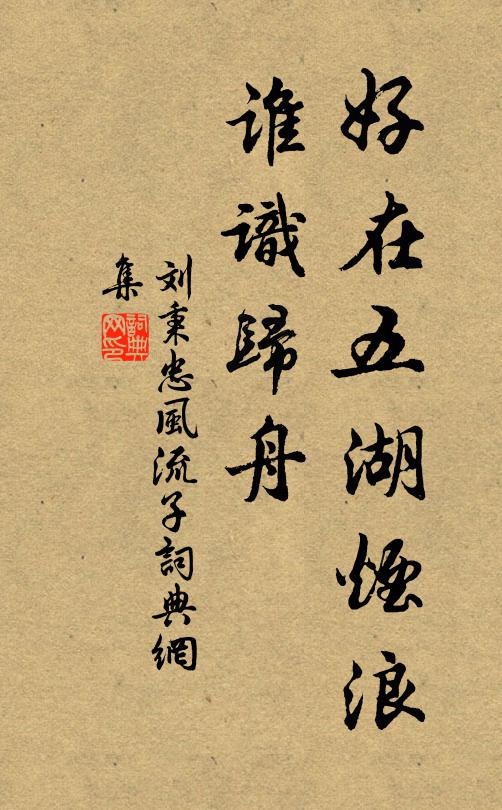 好在五湖煙浪
誰識歸舟
刘秉忠風流子詞典網
集
詞典网印